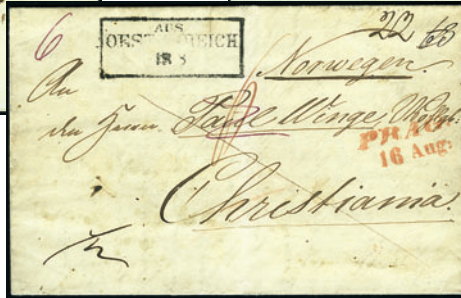 6
AUS
OESTERREICH
22
Norwegen.
An
den Herrn Paul Winge,
PRAG
16 Aug:
Christiania.